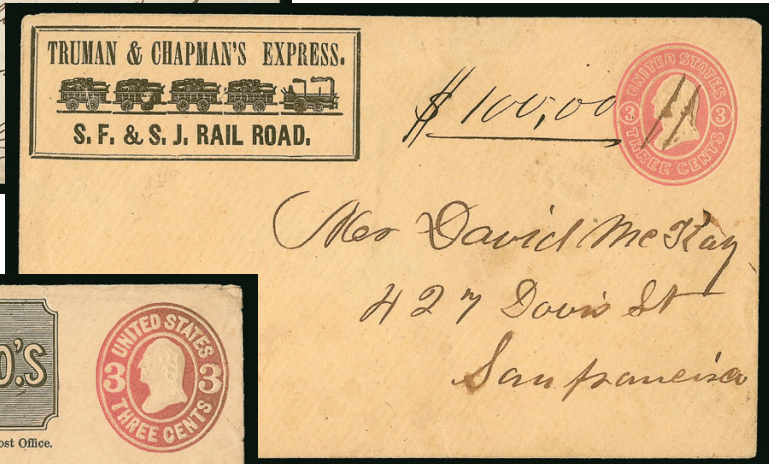 TRUMAN & CHAPMAN'S EXPRESS.
S. F. & S. J. RAIL ROAD.
$100,00
UNITED STATES
3 3
THREE CENTS
Mr David McKay
427 Davis St
San francisco
O.'S
ost Office.
UNITED STATES
3 3
THREE CENTS